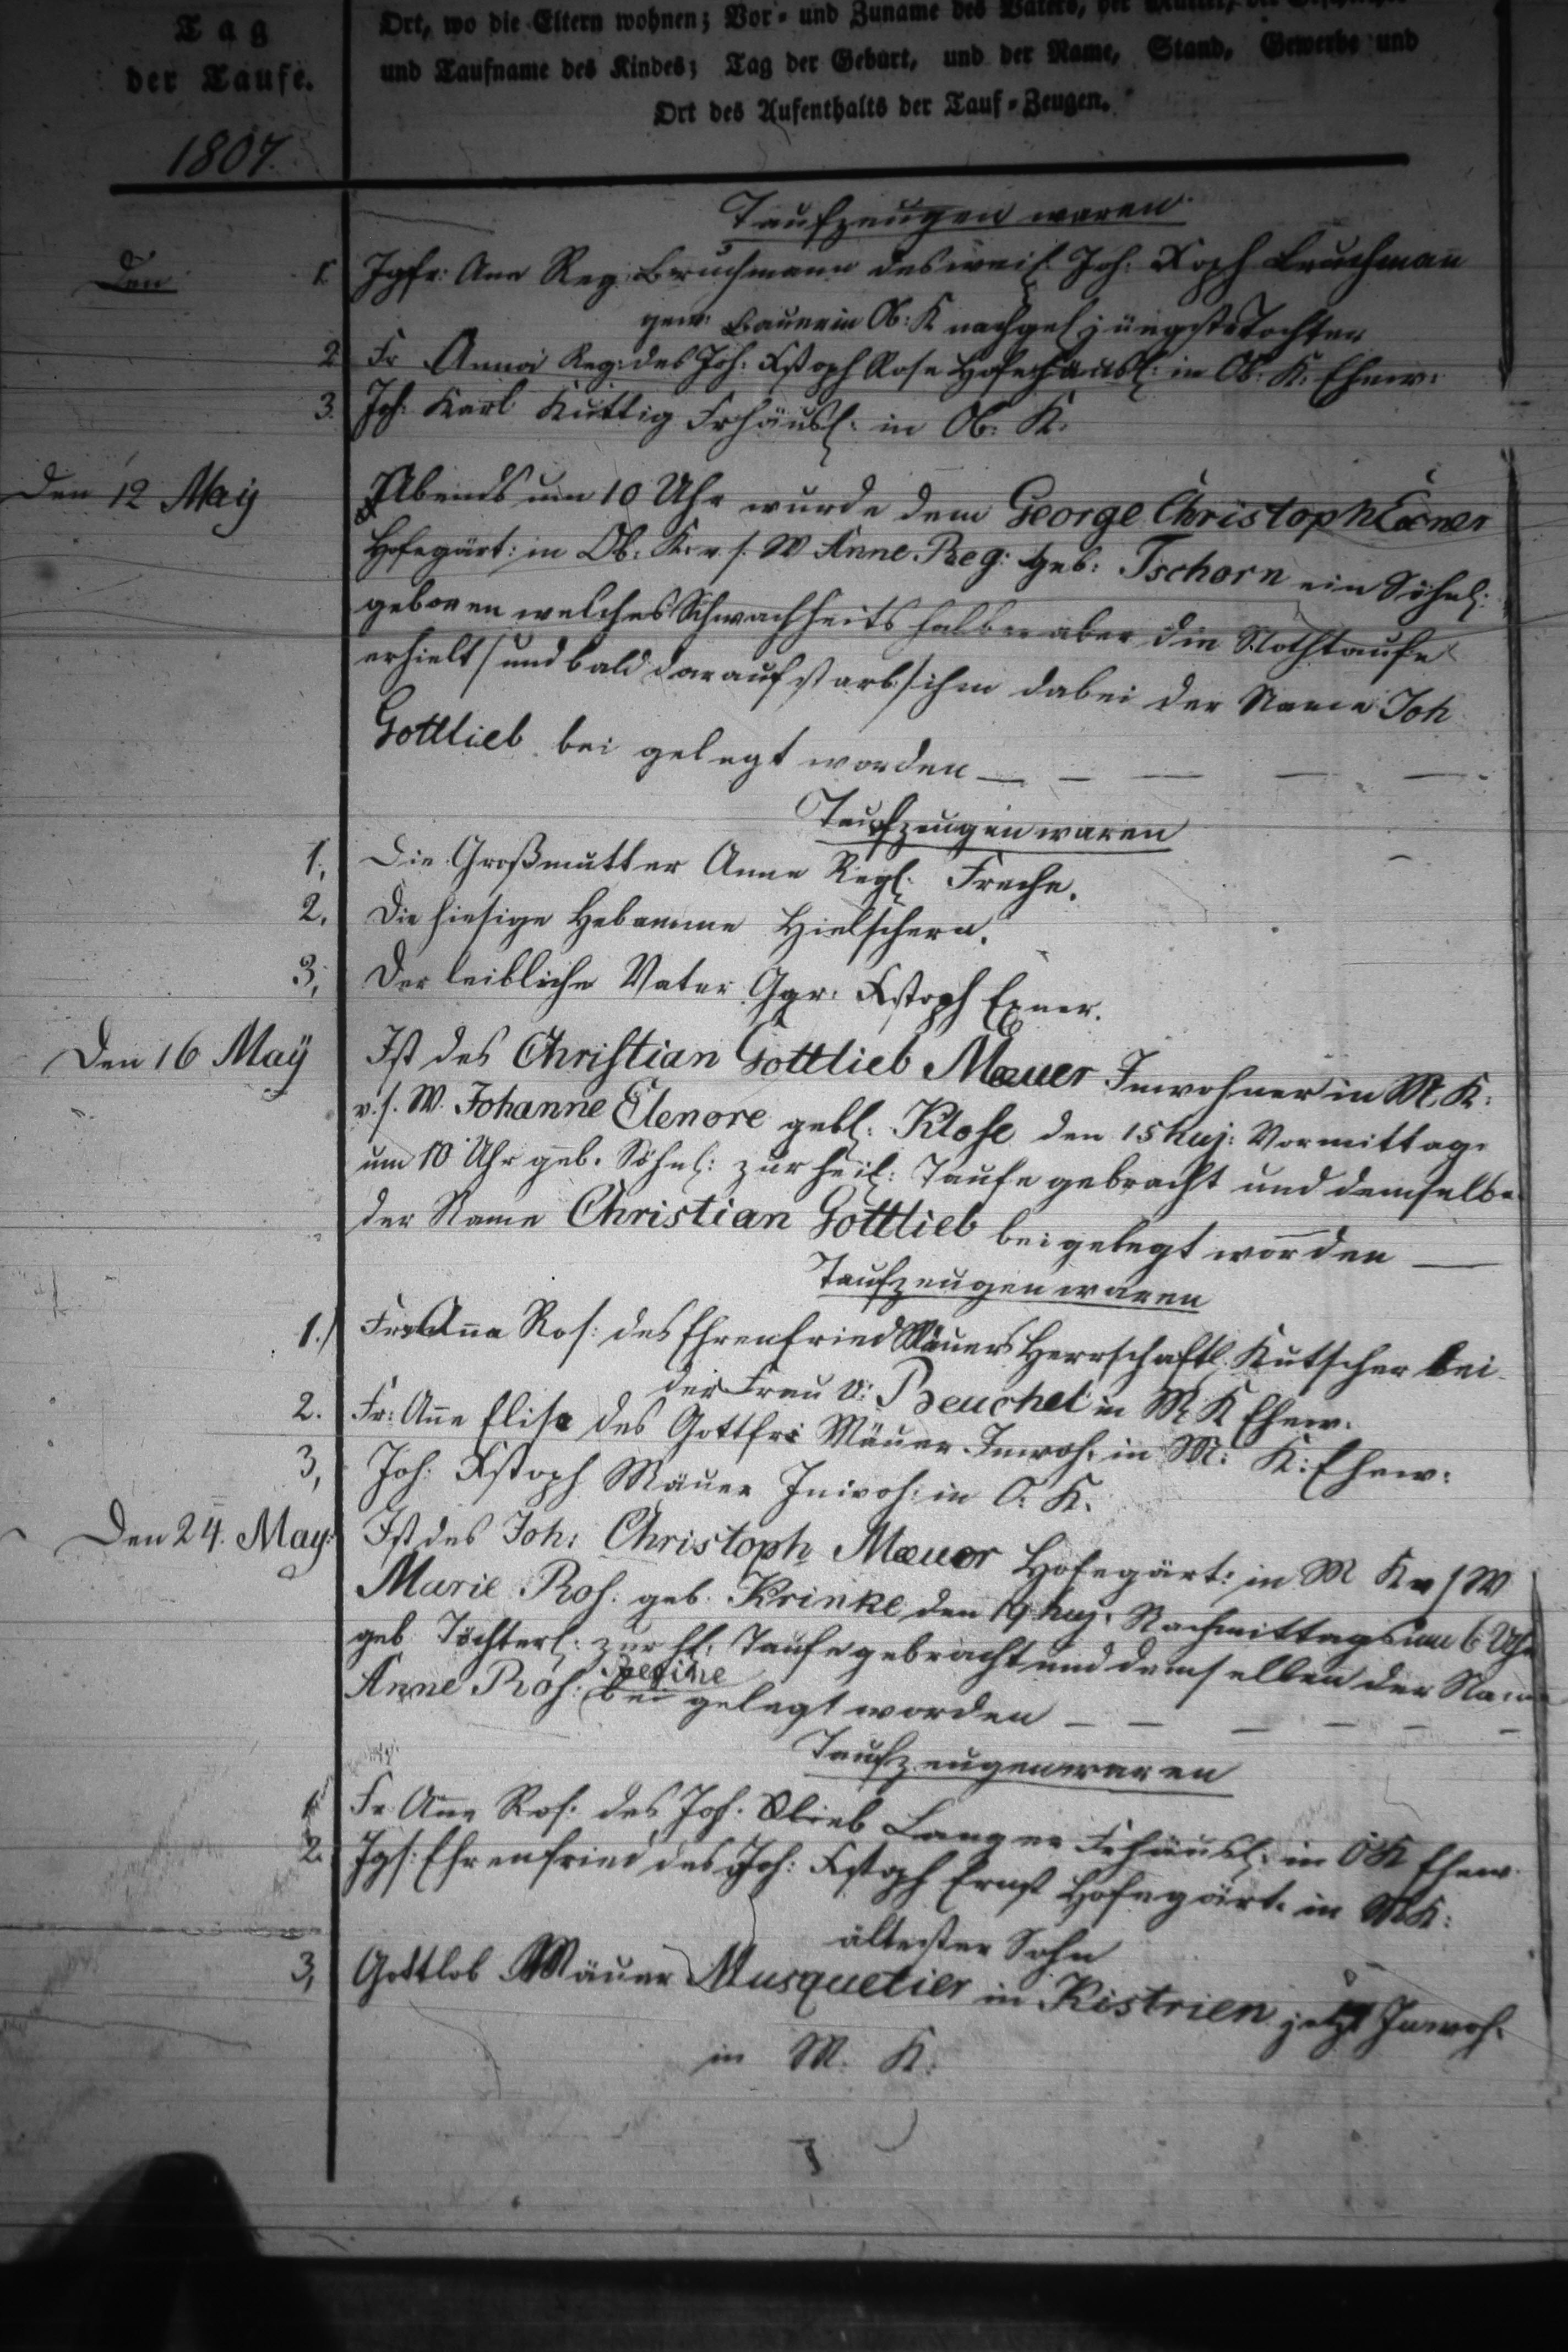 Tag
der Taufe.
1807.
Ort, wo die Eltern wohnen; Vor- und Zuname des Vaters, der Mutter,
und Taufname des Kindes; Tag der Geburt, und der Name, Stand, Gewerbe und
Ort des Aufenthalts der Tauf-Zeugen.
Taufzeugen waren
Den
1. Jgfr: Ann Reg: Bruchmann des weil. Joh: Xoph Bruchmañ
gew: Bauer in Ob: K nachgel jüngste Tochter
2 Fr Anna Reg: des Joh: Xstoph Rose Hofehäusl: in Ob. K. Ehew:
3. Joh: Karl Küttig Frhäusl: in Ob: K.
Den 12 May Abends um 10 Uhr wurde dem George Christoph Exner
Hofegärt: in Ob: K. v. s. W Anne Reg: geb: Tschorn ein Söhnl:
geboren welches Schwachheits halber aber die Nothtaufe
erhielt / und bald darauf starb / ihm dabei der Name Joh
Gottlieb bei gelegt worden — — — — —
Taufzeugen waren
1. Die Großmutter Anne Regl: Freche.
2. Die hiesige Hebamme Hielschern.
3, Der leibliche Vater Ggr: Xstoph Exner.
Den 16 Maÿ Ist des Christian Gottlieb Mæuer Inwohner in M. K:
v. s. W. Johanne Elenore gebl: Klose den 15 huj: Vormittag
um 10 Uhr geb. Söhnl: zur heil: Taufe gebracht und demselbe
der Name Christian Gottlieb bei gelegt worden —
Taufzeugen waren
1./ Fr Aña Ros: des Ehrenfried Mäuers Herrschaftl. Kutscher bei
der Frau v: Beuchel in M K Ehew.
2. Fr: Añe Elisa des Gottfri Mäuer Inwoh: in M: K: Ehew:
3, Joh: Xstoph Mäuer Inwoh: in O. K.
Den 24. May: Ist des Joh: Christoph Mæuer Hofegärt: in M K v s W
Marie Ros: geb. Krinke den 19 huj. Nachmittags um 6 Uhr
geb Töchterl: zur hl: Taufe gebracht und demselben der Name
Regine
Anne Ros: bei gelegt worden — — — — — —
Taufzeugen waren
1 Fr Añe Ros: des Joh. Glieb Langer Frhäusl: in O K Ehew.
2. Jgs: Ehrenfried des Joh: Xstoph Ernst Hofegärt. in M K:
ältester Sohn
3, Gottlob Mäuer Musquetier in Kistrien jetzt Inwoh.
in M. K.